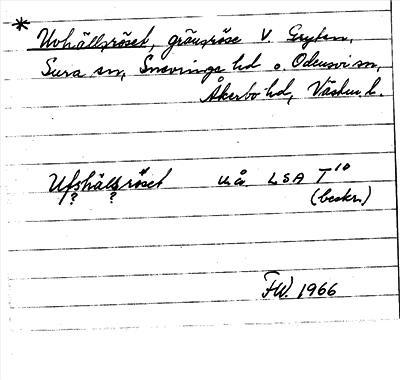 * Uvhällsröset, gränsröse V. Gryten,
Sura sn, Snevringe hd o. Odensvi sn,
Åkerbo hd, Västm. l.
Ufshällsröset u.å. LSA T10
? ? (beskr.)
F.W. 1966